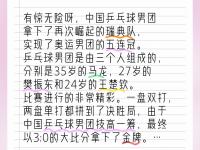 有惊无险呀，中国乒乓球男团
拿下了再次崛起的瑞典队，
实现了奥运男团的五连冠。
乒乓球男团是由三个人组成的，
分别是35岁的马龙，27岁的
樊振东和24岁的王楚钦。
比赛进行的非常精彩。一盘双打，
两盘单打都拼到了决胜局，由于
中国乒乓球男团技高一筹，最终
以3:0的大比分拿下了金牌。…